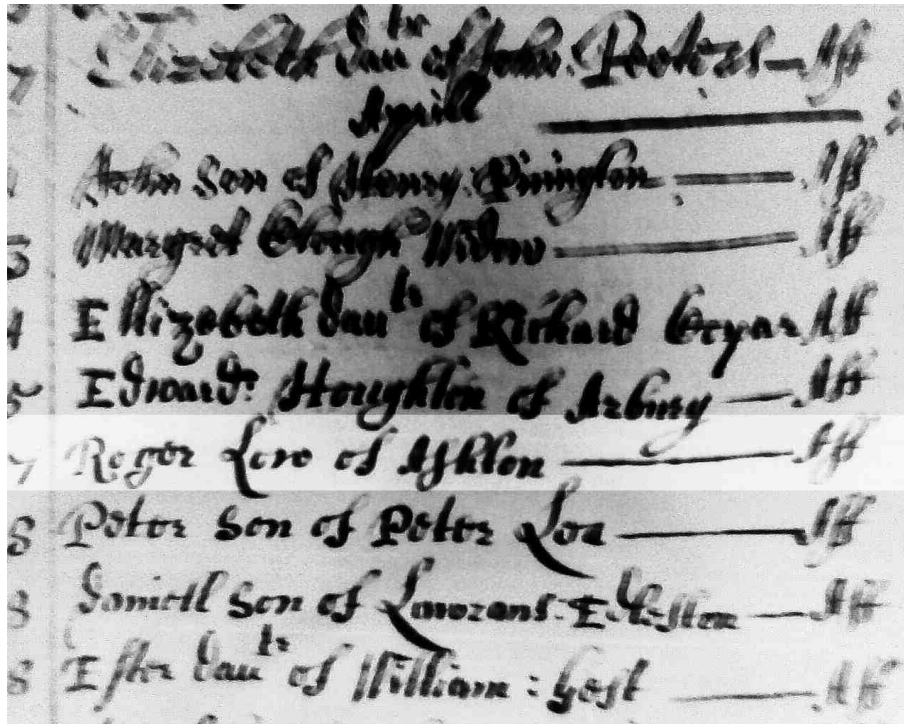 7 Elizabeth dautr of John Peeters — Aff
Aprill
John Son of Henry Pinington — Aff
3 Margret Clough Widow — Aff
4 Ellizabeth dautr of Richard Cryar Aff
5 Edward: Houghton of Arbury — Aff
7 Roger Low of Ashton — Aff
8 Peter Son of Peter Lea — Aff
8 daniell Son of Lawrans: Edleston — Aff
8 Ester dautr of William: Gest — Aff